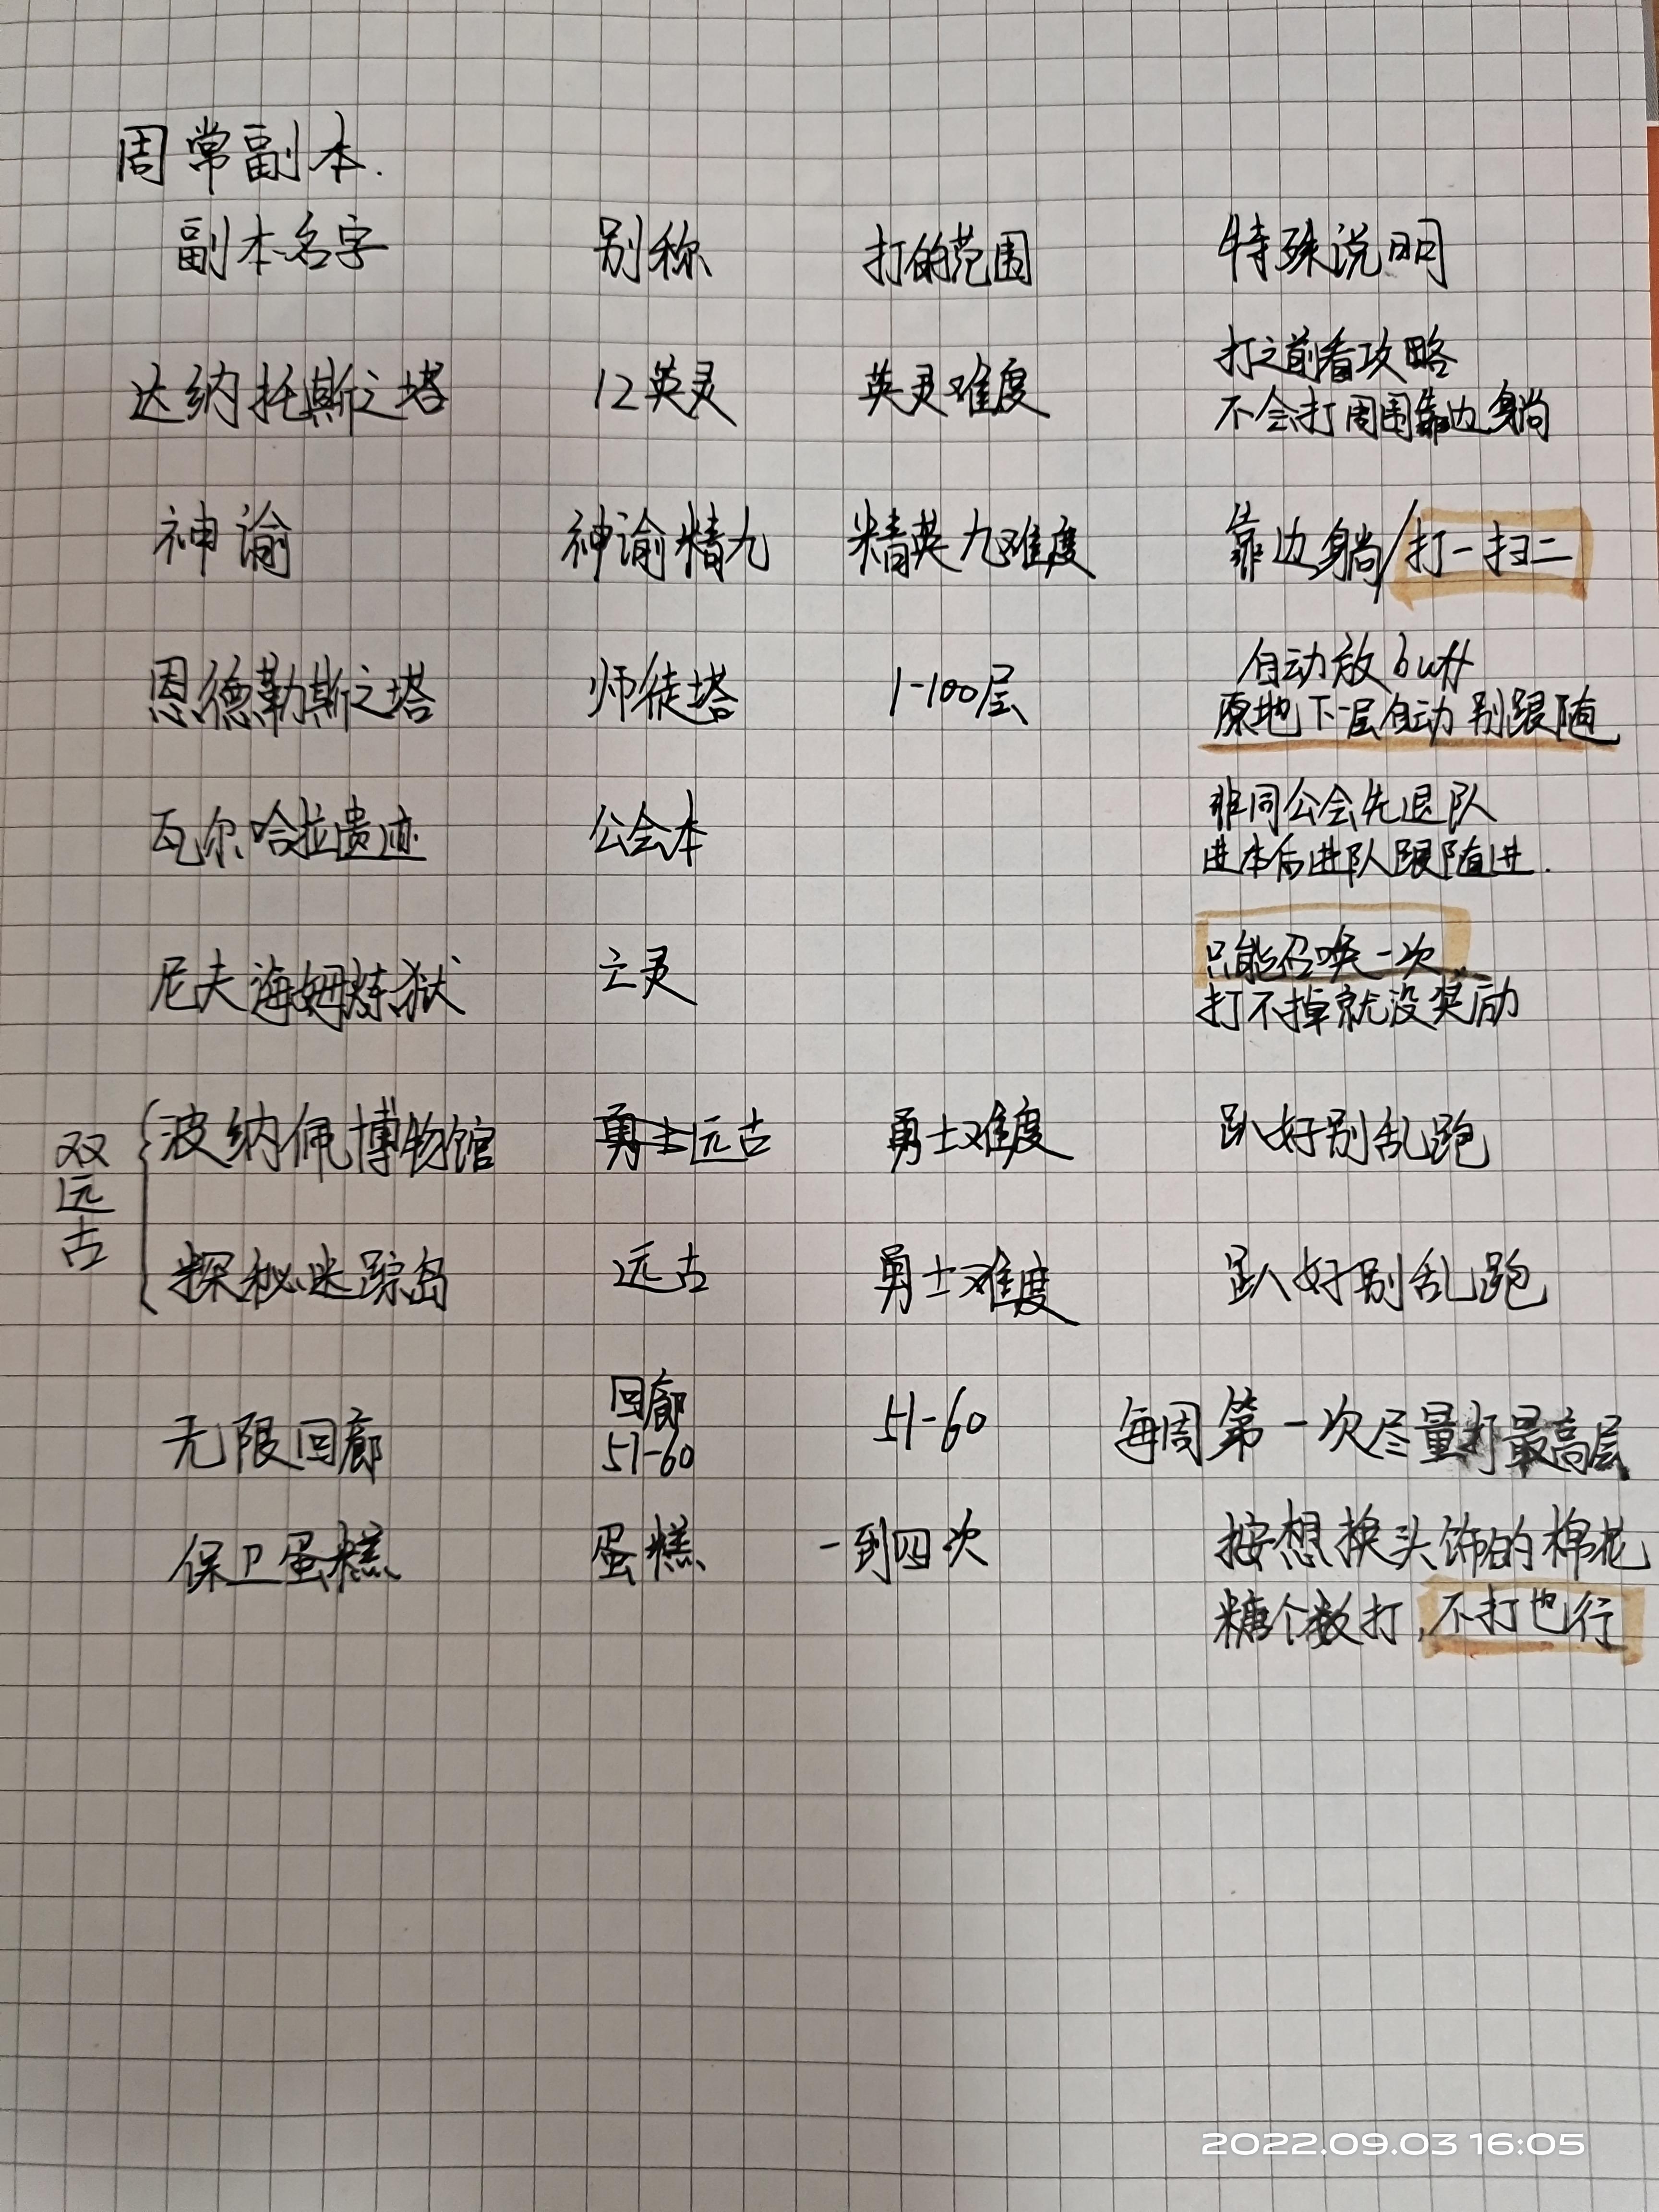 周常副本.
副本名字 别称 打的范围 特殊说明
达纳托斯之塔 12英灵 英灵难度 打之前看攻略
不会打周围靠边躺
神谕 神谕精九 精英九难度 靠边躺/打一扫二
恩德勒斯之塔 师徒塔 1-100层 自动放buff
原地下一层自动别跟随
瓦尔哈拉遗迹 公会本 非同公会先退队
进本后进队跟随进.
尼夫海姆炼狱 亡灵 只能召唤一次
打不掉就没奖励
双远古
波纳佩博物馆 勇士远古 勇士难度 趴好别乱跑
探秘迷踪岛 远古 勇士难度 趴好别乱跑
无限回廊 回廊 51-60 51-60 每周第一次尽量打最高层
保卫蛋糕 蛋糕 一到四次 按想换头饰的棉花
糖个数打,不打也行
2022.09.03 16:05